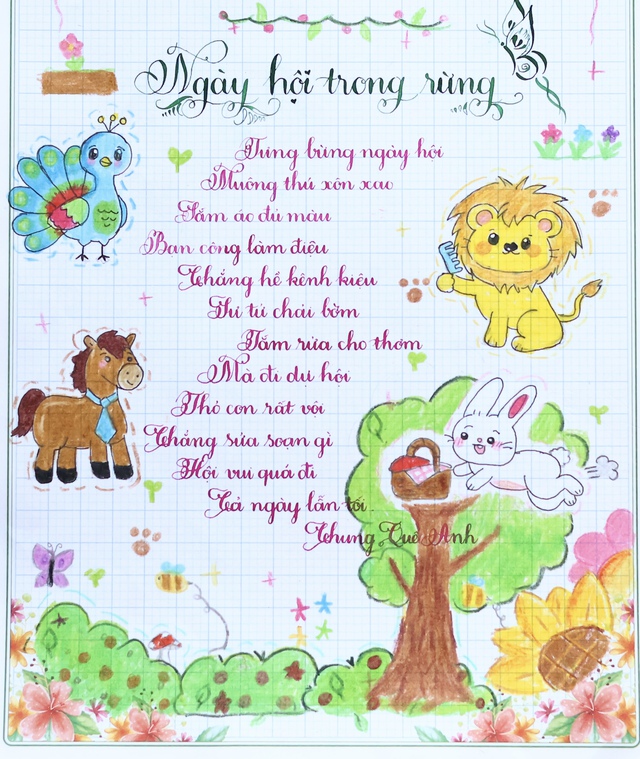 Ngày hội trong rừng
Tưng bừng ngày hội
Muông thú xôn xao
Sắm áo đủ màu
Bạn công làm điệu
Chẳng hề kênh kiệu
Sư tử chải bờm
Tắm rửa cho thơm
Mà đi dự hội
Thỏ con rất vội
Chẳng sửa soạn gì
Hội vui quá đi
Cả ngày lẫn tối.
Chung Quế Anh